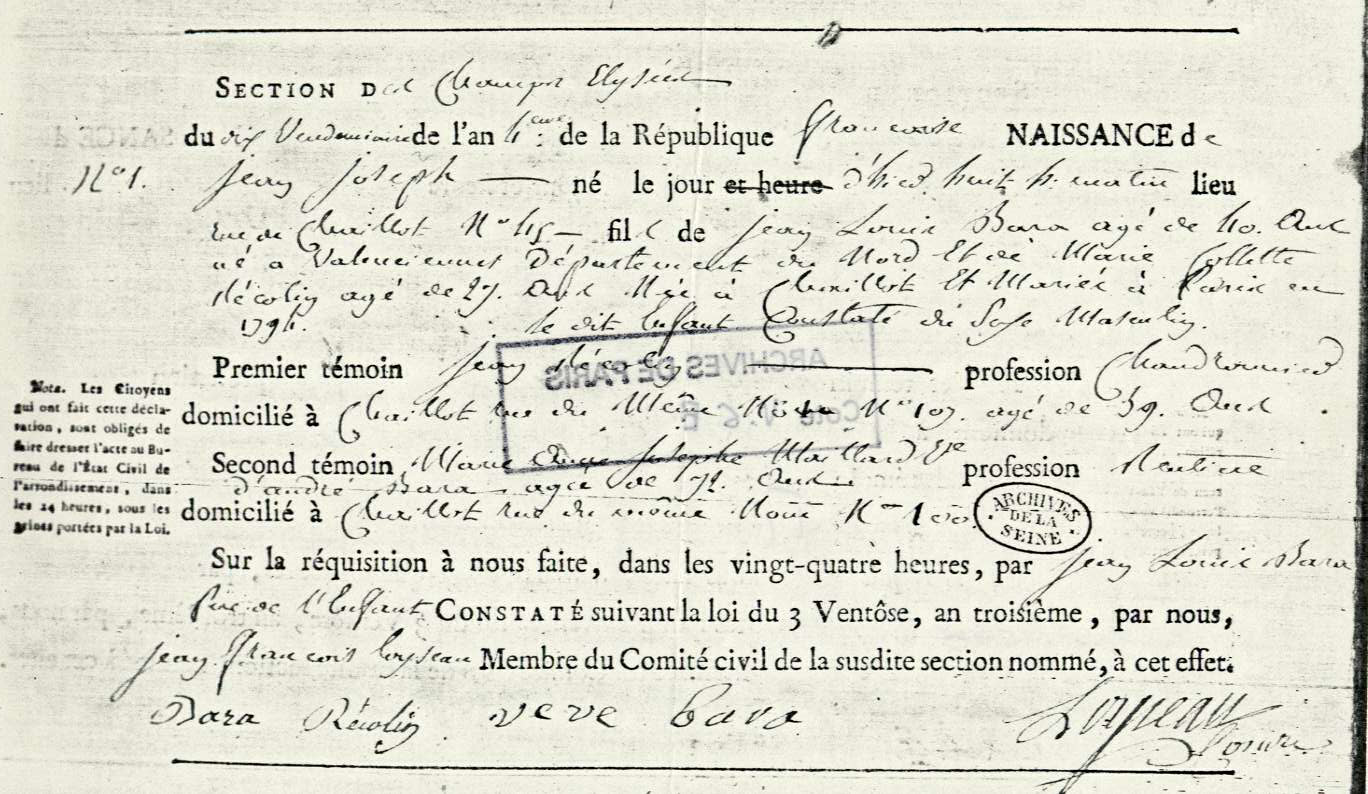 SECTION Des Champs Elysées
du dix Vendemiaire de l'an 4eme de la République françoise NAISSANCE de
N° 1. Jean Joseph né le jour et heure d'hier huit h. matin lieu
rue de Chaillot N° 45 fils de Jean Louis Bara agé de 40. Ans
né a Valenciennes Département du Nord Et de Marie Collette
Récolin agé de 27. Ans Née à Chaillot Et Mariés à Paris en
1794. le dit Enfant Constaté du Sexe Masculin.
Premier témoin Jean Récolin profession Chaudronnier
domicilié à Chaillot rue du Même Nom N° 107. agé de 59. Ans
Second témoin Marie Anne Josephe Maillard Vve profession Rentière
d'andré Bara agée de 72. Ans
domicilié à Chaillot rue du même Nom N°
Sur la réquisition à nous faite, dans les vingt-quatre heures, par Jean Louis Bara
père de l'Enfant CONSTATÉ suivant la loi du 3 Ventôse, an troisième, par nous,
Jean François Loyseau Membre du Comité civil de la susdite section nommé, à cet effet.
Bara Récolin veve bara Loyseau
Nota. Les Citoyens
qui ont fait cette décla-
ration, sont obligés de
faire dresser l'acte au Bu-
reau de l'État Civil de
l'arrondissement, dans
les 24 heures, sous les
peines portées par la Loi.
ARCHIVES DE PARIS
ARCHIVES
DE LA
SEINE